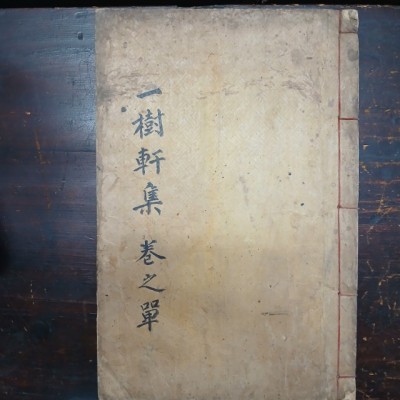 一樹軒集 卷之單